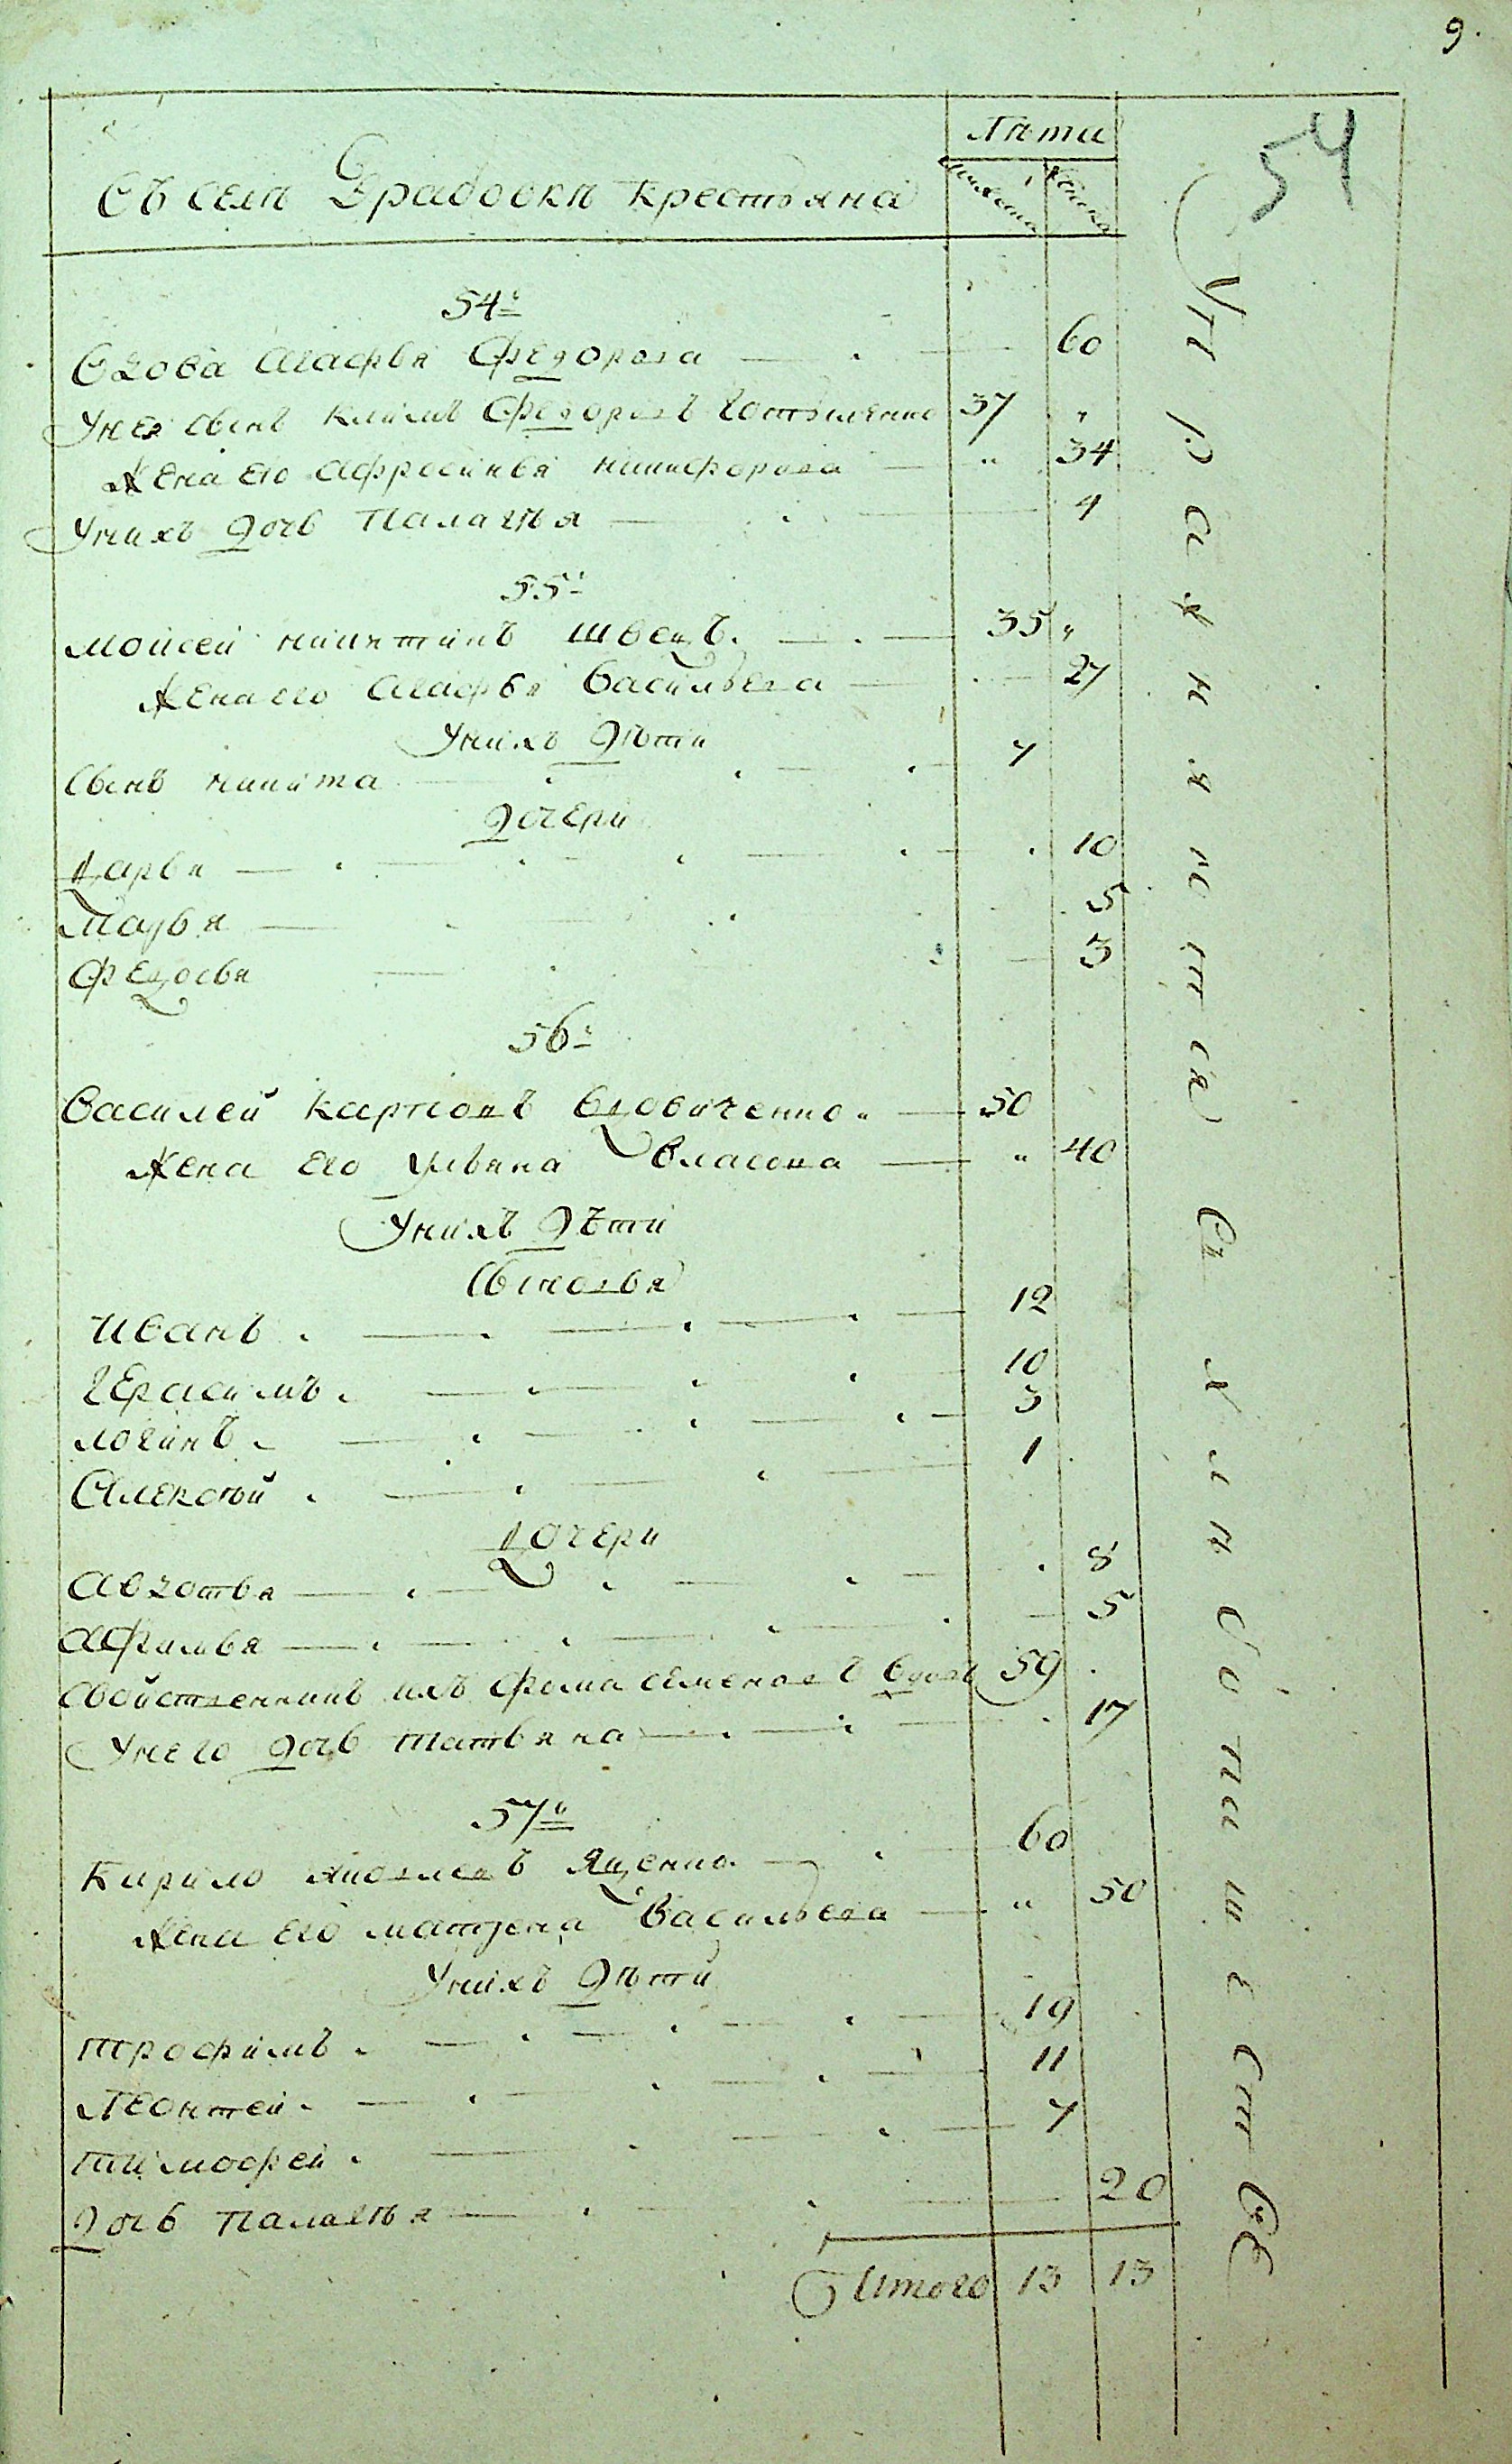 9.
54
Въ селѣ Драбовкѣ крестьяна
Лѣта
мужеска
женска
54й
Вдова Агафья Федорова 60
У нея сынъ Климъ Федоровъ 37 "
Жена его Афросинья Никифорова " 34
У нихъ дочь Палагѣя 4
55й
Моисей Никитинъ Швецъ. 35 "
Жена его Агафья Васильева 27
У нихъ дѣти
Сынъ Никита 7
дочери
Дарья 10
Марья 5
Федосья 3
56й
Василей Карповъ Вдовиченко 50
Жена его Ульяна Власова " 40
У нихъ дѣти
Сыновья
Иванъ 12
Герасимъ 10
Логинъ 3
Алексѣй 1
Дочери
Авдотья 8
Афимья 5
Свойственникъ ихъ Фома Семеновъ 59
У него дочь Татьяна 17
57й
Кирило Яковлевъ Яценко 60
Жена его Матрена Васильева " 50
У нихъ дѣти
Трофимъ 19
Леонтей 11
Тимофей 7
дочь Палагѣя 20
Итого 13 13